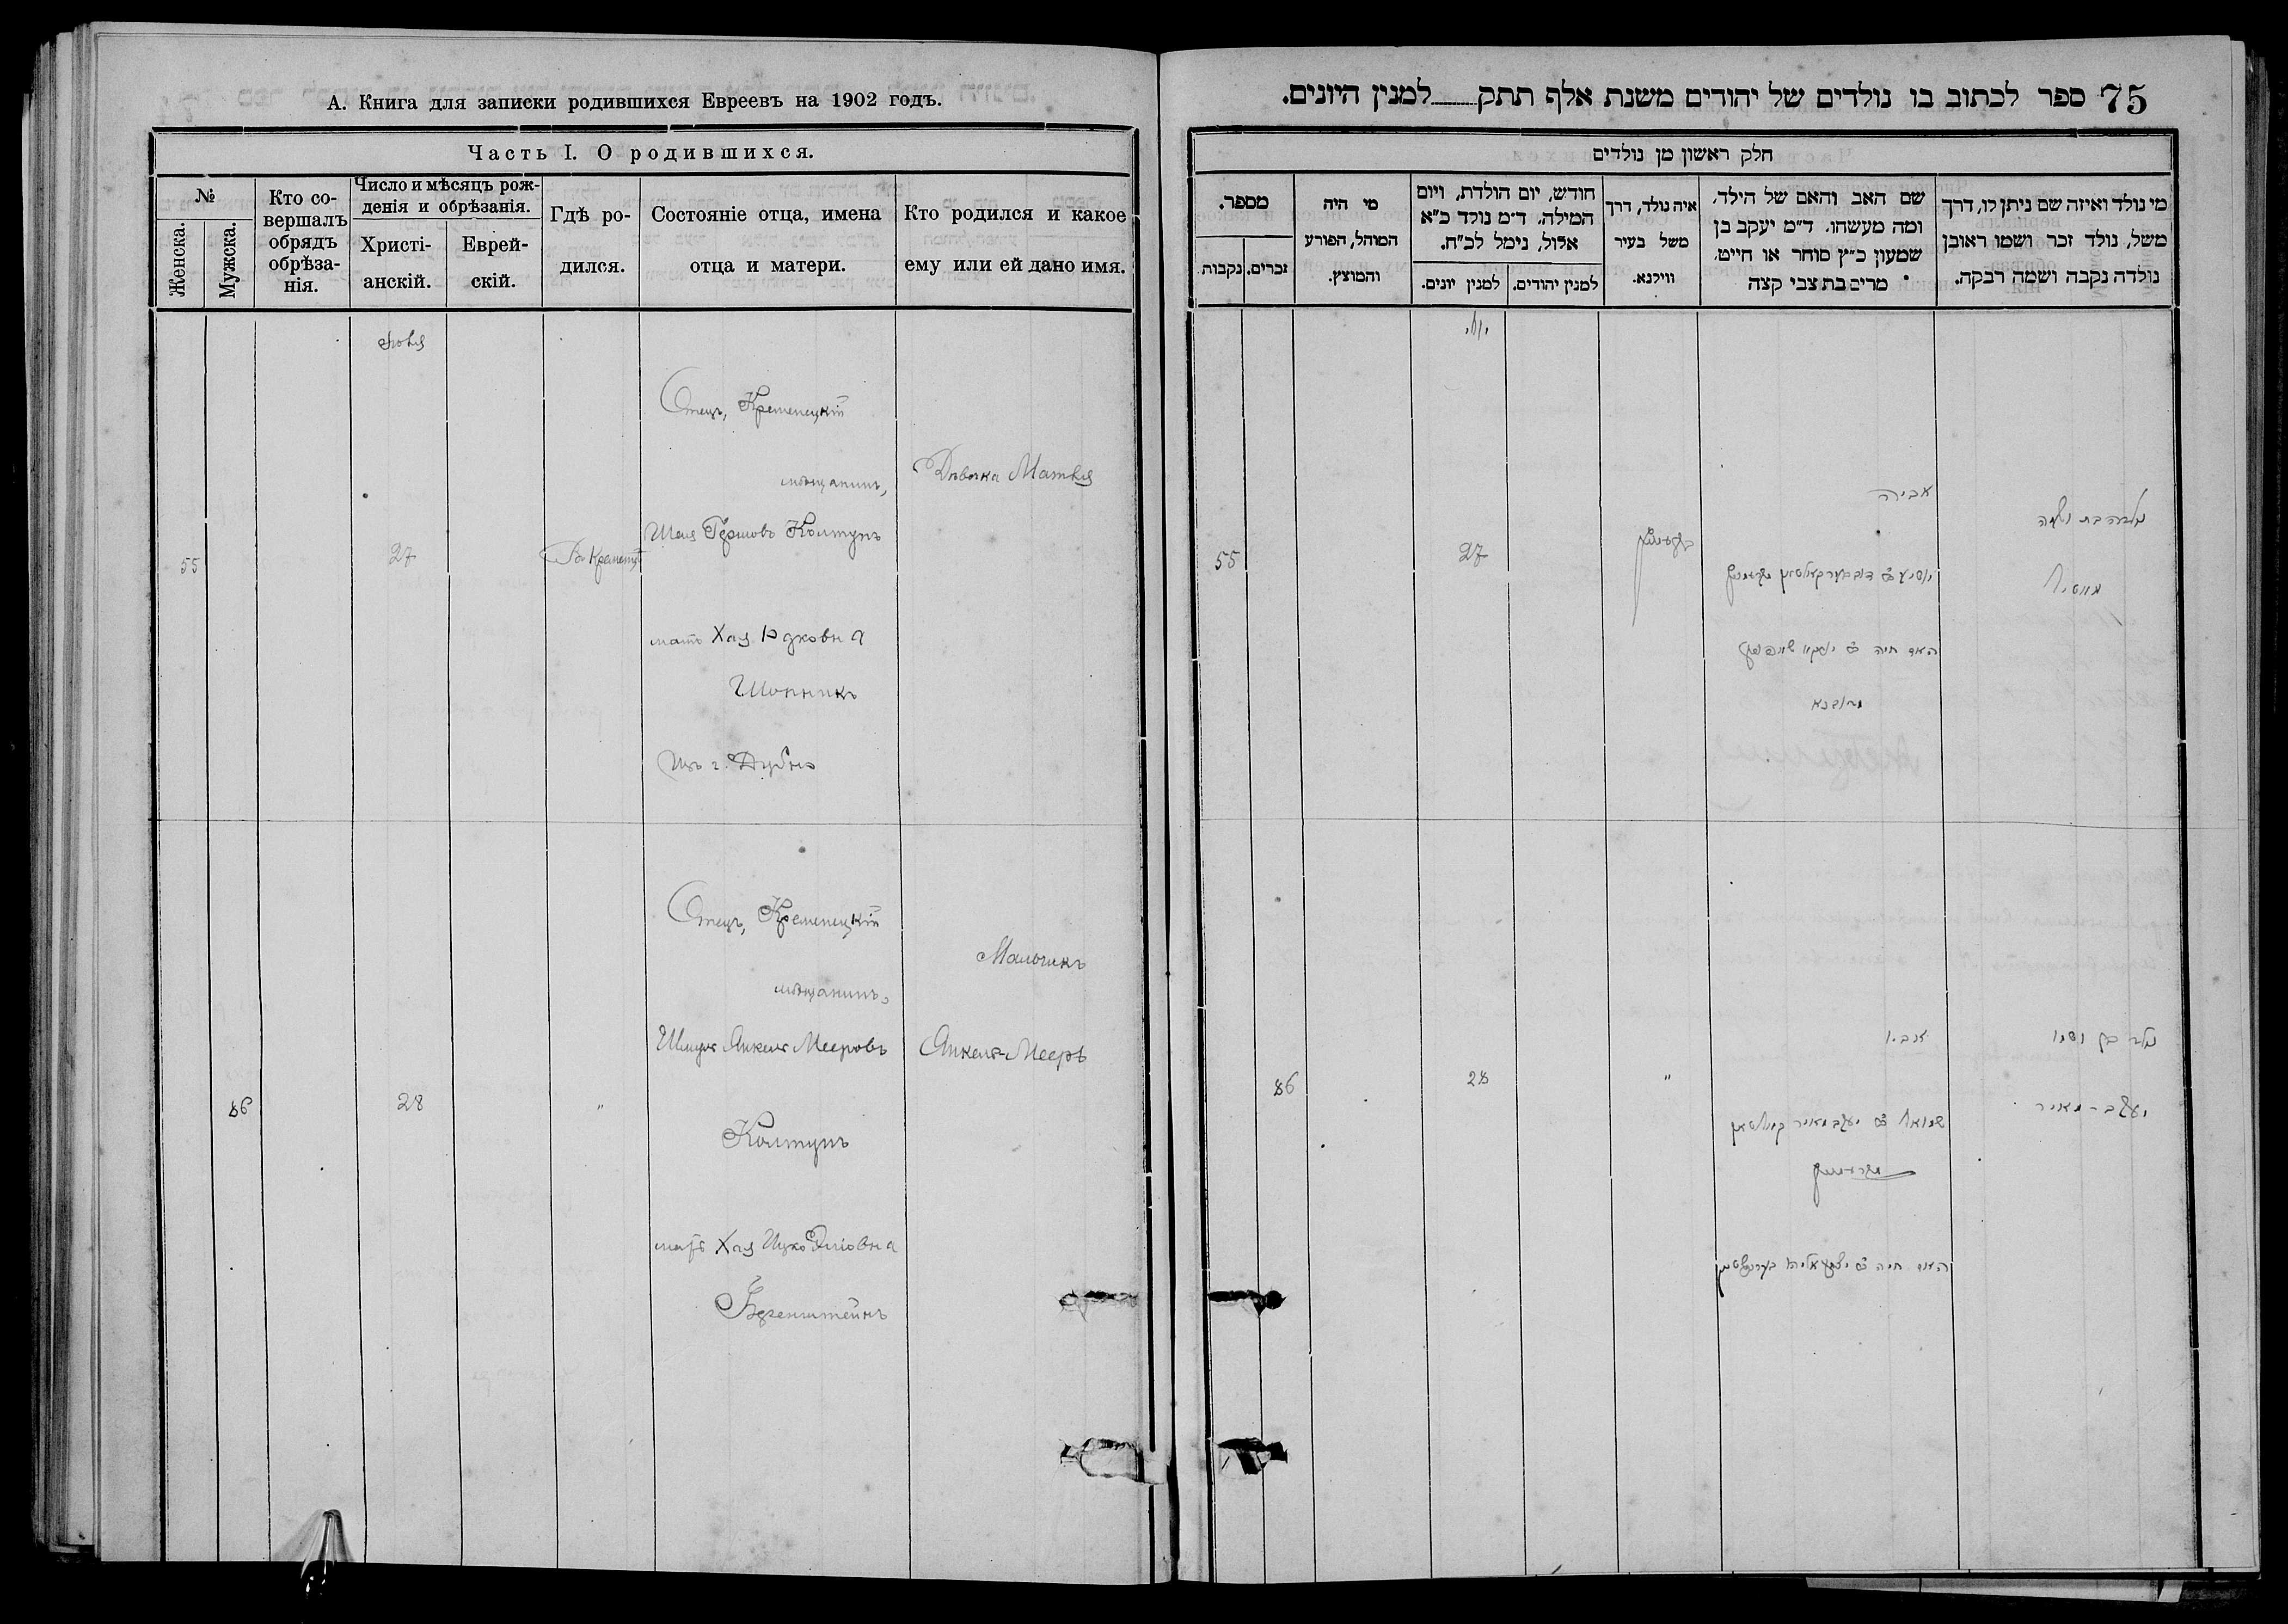 А. Книга для записки родившихся Евреевъ на 1902 годъ.
Часть I. О родившихся.
№
Женска.
Мужска.
Кто со-
вершалъ
обрядъ
обрѣза-
нія.
Число и мѣсяцъ рож-
денія и обрѣзанія.
Христі-
анскій.
Еврей-
скій.
Гдѣ ро-
дился.
Состояніе отца, имена
отца и матери.
Кто родился и какое
ему или ей дано имя.
Отецъ, Кременецкій
мѣщанинъ,
Дѣвочка Матля
Шая Гершовъ Колтунъ
55
27
Въ Кременцѣ
мать Хая
Шопникъ
Изъ г. Дубно
Отецъ, Кременецкій
Мальчикъ
мѣщанинъ,
Шмуль Янкель Мееровъ
Янкель-Мееръ
86
28
"
Колтунъ
мать Хая Ицко Эліовна
Бргенштейнъ
75 ספר לכתוב בו נולדים של יהודים משנת אלף תתק למנין היונים.
חלק ראשון מן נולדים
מי נולד ואיזה שם ניתן לו, דרך
משל, נולד זכר ושמו ראובן
נולדה נקבה ושמה רבקה.
שם האב והאם של הילד,
ומה מעשהו. ד"מ יעקב בן
שמעון כ"ץ סוחר או חייט,
מרים בת צבי קצה
איה נולד, דרך
משל בעיר
ווילנא.
חודש, יום הולדת, ויום
המילה, ד"מ נולד כ"א
אלול, נימל לכ"ח.
למנין יהודים.
למנין יונים.
מי היה
המוהל, הפורע
והמוצץ.
מספר.
זכרים.
נקבות.
יולי
אביה
נולדה בת ושמה
55
27
קרעמניץ
מאטיל
האם חיה
מדובנא
אביו
נולד בן ושמו
86
28
"
יעקב-מאיר
שמואל יעקב מאיר קולטון
האם חיה